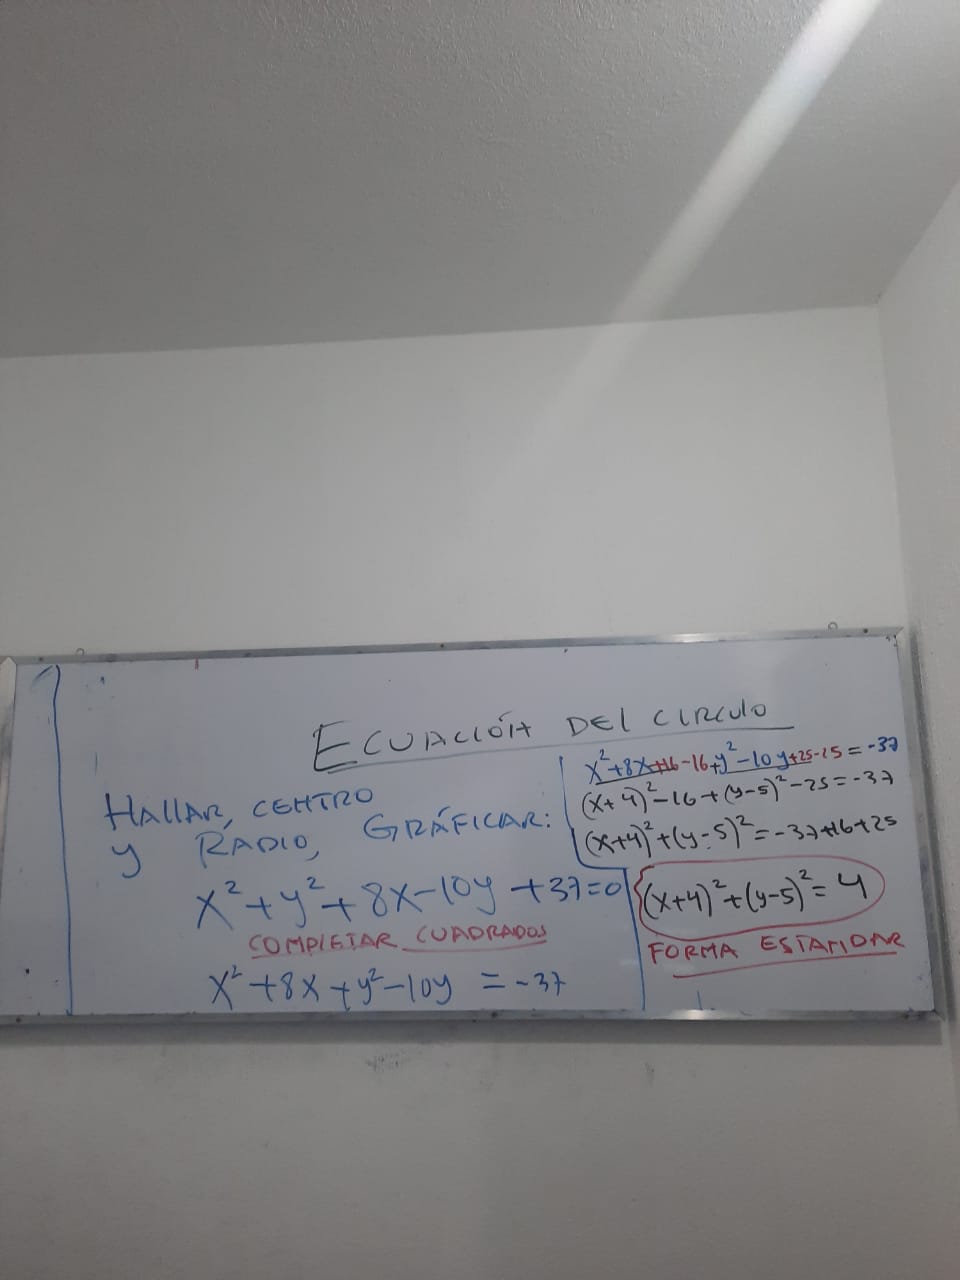 ECUACIÓN DEL CIRCULO
HALLAR, CENTRO
y RADIO, GRÁFICAR:
x²+y²+8x-10y+37=0
COMPLETAR CUADRADOS
x²+8x+y²-10y = -37
x²+8x+16-16+y²-10y+25-25=-37
(x+4)²-16+(y-5)²-25=-37
(x+4)²+(y-5)²=-37+16+25
(x+4)²+(y-5)²=4
FORMA ESTANDAR